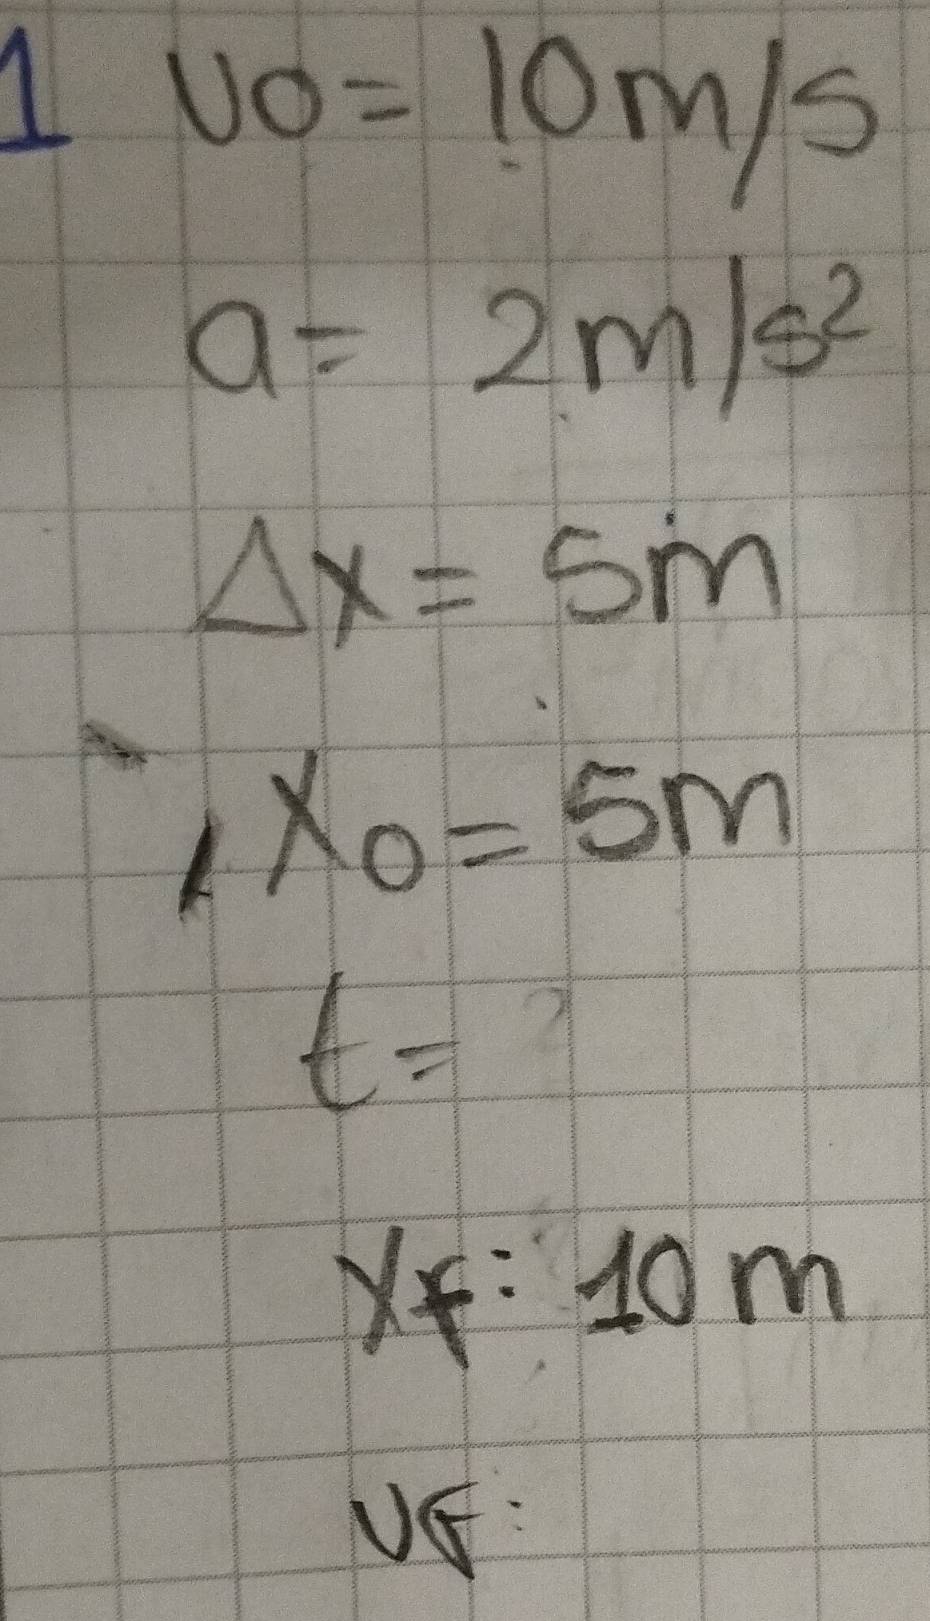 1 vo= 10m/s
a= 2m/s²
Δx= 5m
X₀=5m
t= ?
Xf: 10m
vf: